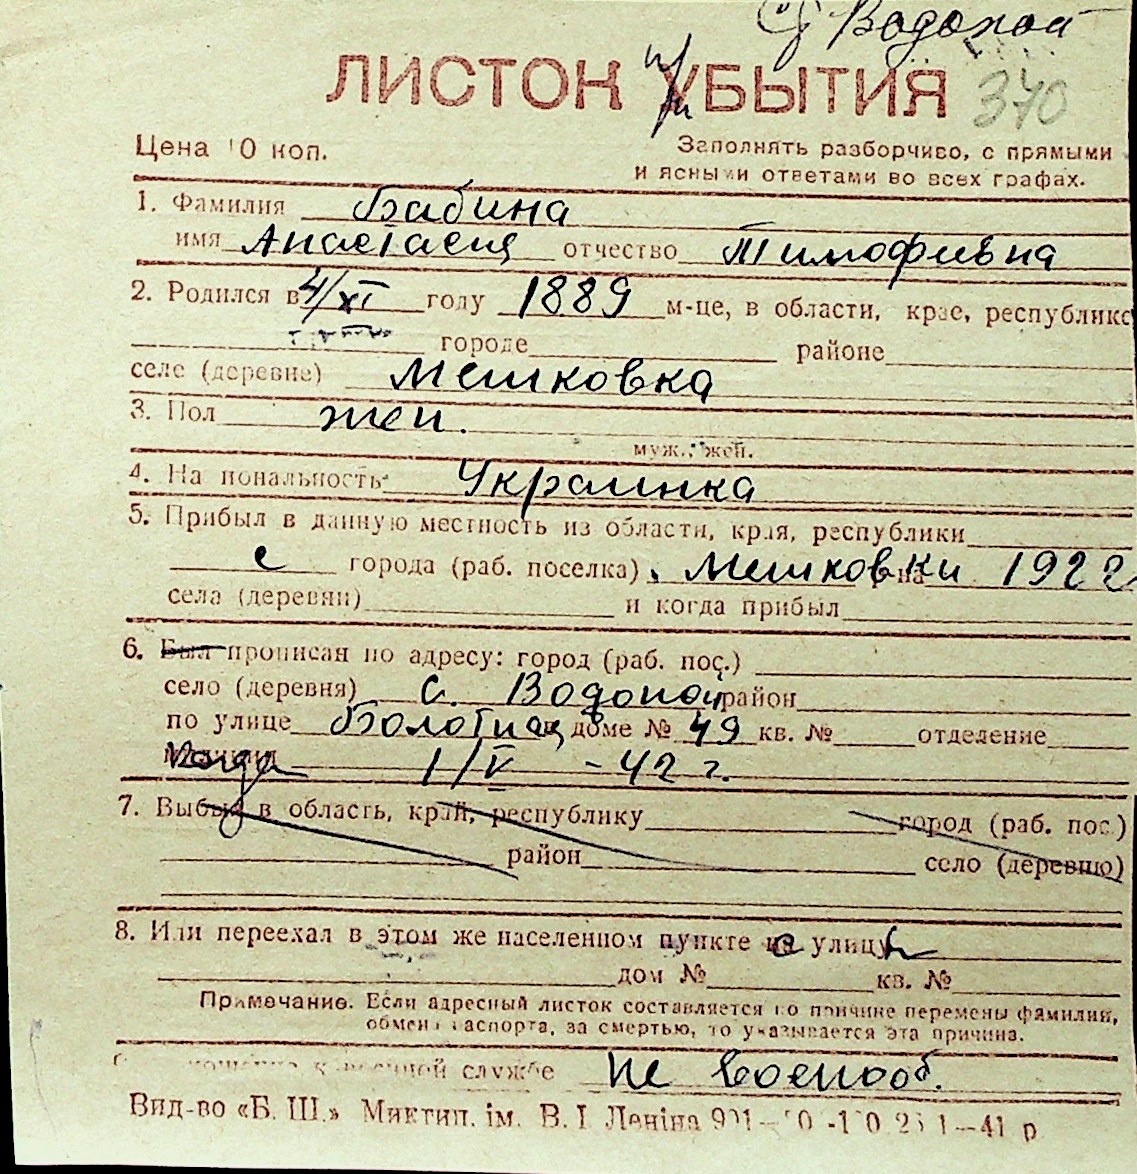 с Водопой
ЛИСТОК УБЫТИЯ
при
370
Цена 10 коп.
Заполнять разборчиво, с прямыми
и ясными ответами во всех графах.
1. Фамилия Бабина
имя Анастасия отчество Тимофиевна
2. Родился в 4/XI году 1889 м-це, в области, крае, республике
городе районе
селе (деревне) Мешковка
3. Пол жен.
муж., жен.
4. Национальность Украинка
5. Прибыл в данную местность из области, края, республики
с города (раб. поселка) Мешковки 1922
села (деревни) и когда прибыл
6. Был прописан по адресу: город (раб. пос.)
село (деревня) с. Водопой район
по улице Болотная дом № 49 кв. № отделение
когда 1/V - 42 г.
7. Выбыл в область, край, республику город (раб. пос.)
район село (деревню)
8. Или переехал в этом же населенном пункте с улицы
дом № кв. №
Примечание. Если адресный листок составляется по причине перемены фамилии,
обмена паспорта, за смертью, то указывается эта причина.
военной службе не военооб.
Вид-во «Б. Ш.» Миктип. ім. В. І Леніна